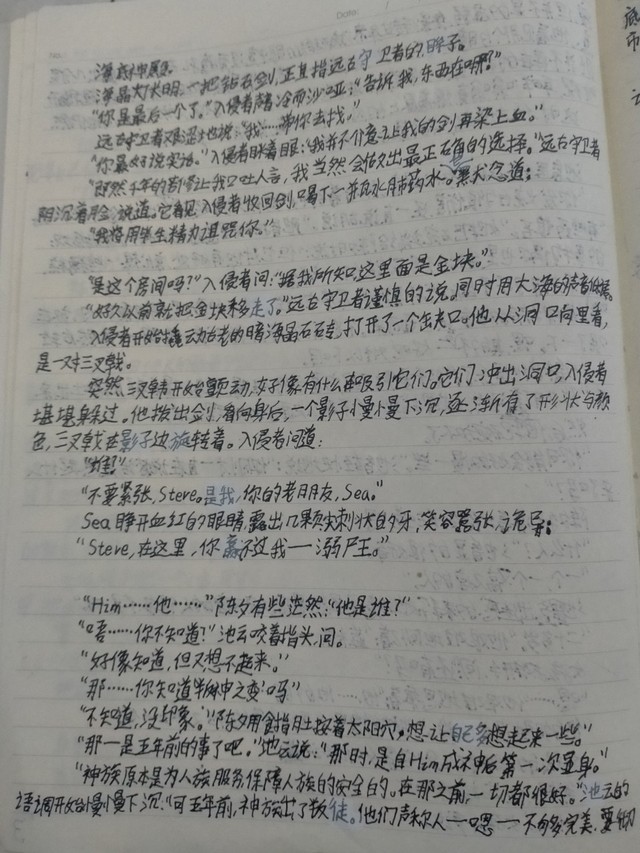 海底神殿。
海晶灯长明。一把钻石剑，正直指远古守卫者的脖子。
“你是最后一个了。”入侵者声音冷而沙哑：“告诉我，东西在哪？”
远古守卫者艰涩地说：“我……带你去找。”
“你最好说实话。”入侵者眯着眼：“我并不介意让我的剑再染上血。”
“既然千年的割惜让我口吐人言，我当然会做出最正确的选择。”远古守卫者
阴沉着脸说道。它看见入侵者收回剑，喝下一并瓦水肺药水。默念道：
“我将用毕生精力诅咒你。”
“是这个房间吗？”入侵者问：“据我所知，这里面是金块。”
“好久以前就把金块移走了。”远古守卫者谨慎的说。同时用大海的声音
入侵者开始撬动古老的暗海晶石砖，打开了一个缺口。他从洞口向里看，
是一对三叉戟。
突然，三叉戟开始颤动，好像有什么在吸引它们。它们冲出洞口，入侵者
堪堪躲过。他拔出剑，看向身后，一个影子慢慢下沉，逐渐有了形状与颜
色，三叉戟在影子边旋转着。入侵者问道：
“谁？”
“不要紧张，Steve。是我，你的老朋友，Sea。”
Sea睁开血红的眼睛，露出几颗尖刺状的牙，笑容嚣张，诡异：
“Steve，在这里，你赢不过我——溺尸王。”
“Him……他……”陈夕有些茫然：“他是谁？”
“唔……你不知道？”池云咬着指头，问。
“好像知道，但又想不起来。”
“那……你知道半麻中之变吗”
“不知道，没印象。”陈夕用食指月土按着太阳穴，想让自己多想起来一些。“
“那一是五年前的事了吧。”池云说：“那时，是自Him成神后第一次显身。”
“神族原本是为人族服务，保障人族的安全的。在那之前，一切都很好。”池云的
语调开始慢慢下沉：“可五年前，神族出了叛徒。他们声称人——嗯——不够完美，要